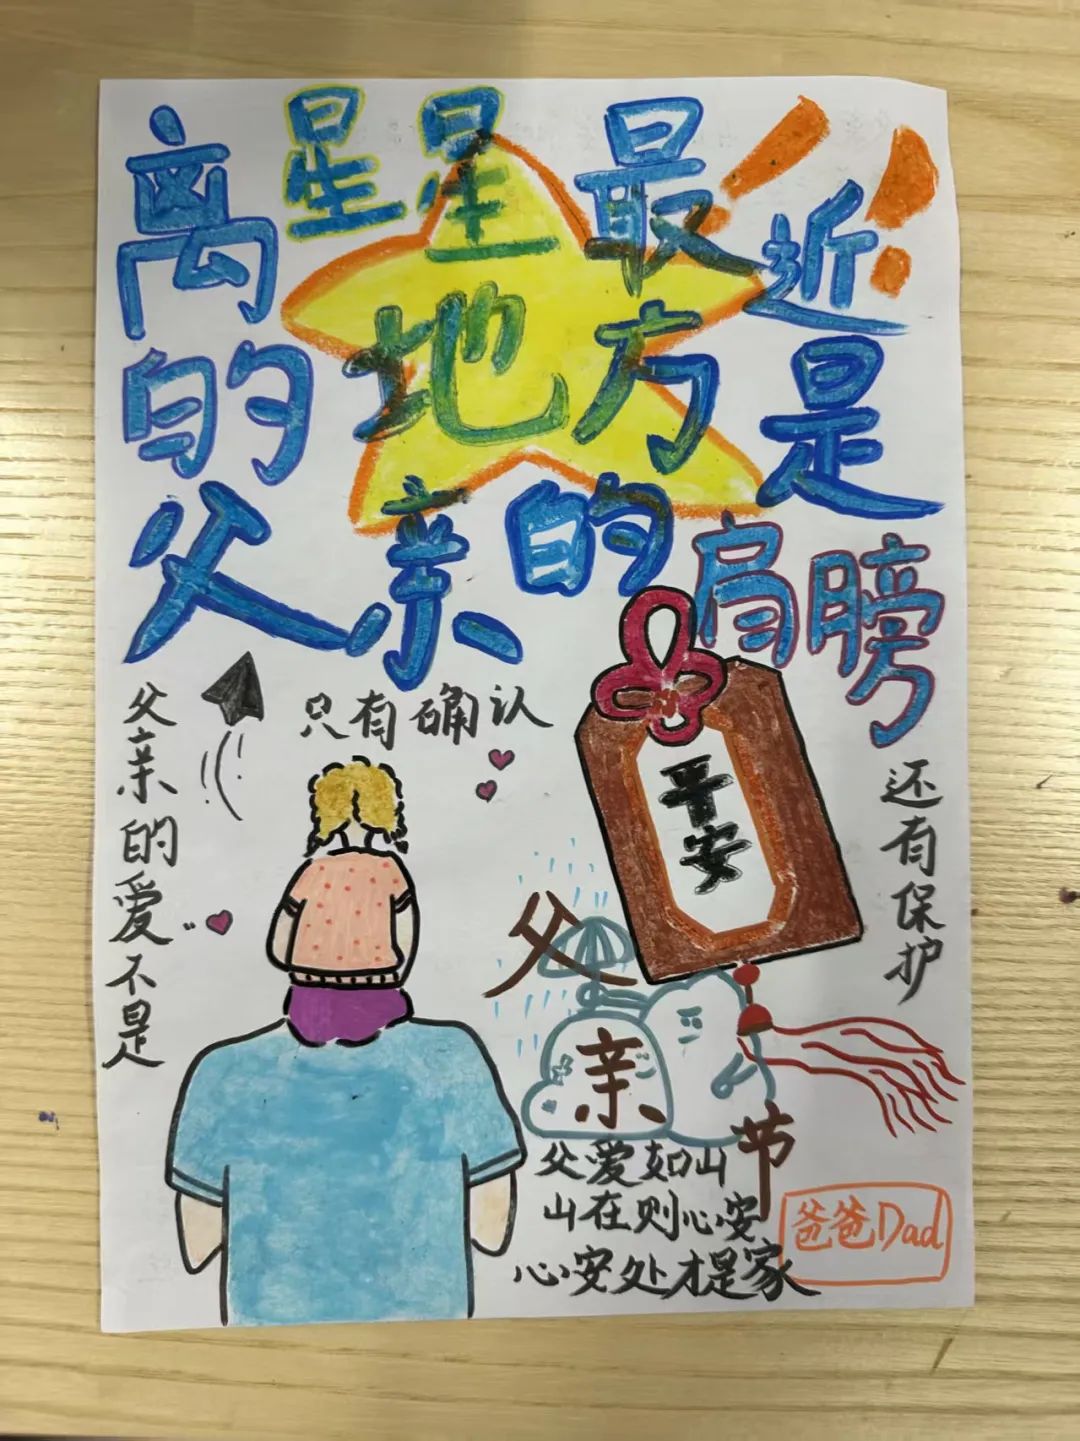 离星星最近!!
的地方是
父亲的肩膀
父亲的爱不是
只有确认
还有保护
平安
父
亲
节
父爱如山
山在则心安
心安处才是家
爸爸Dad